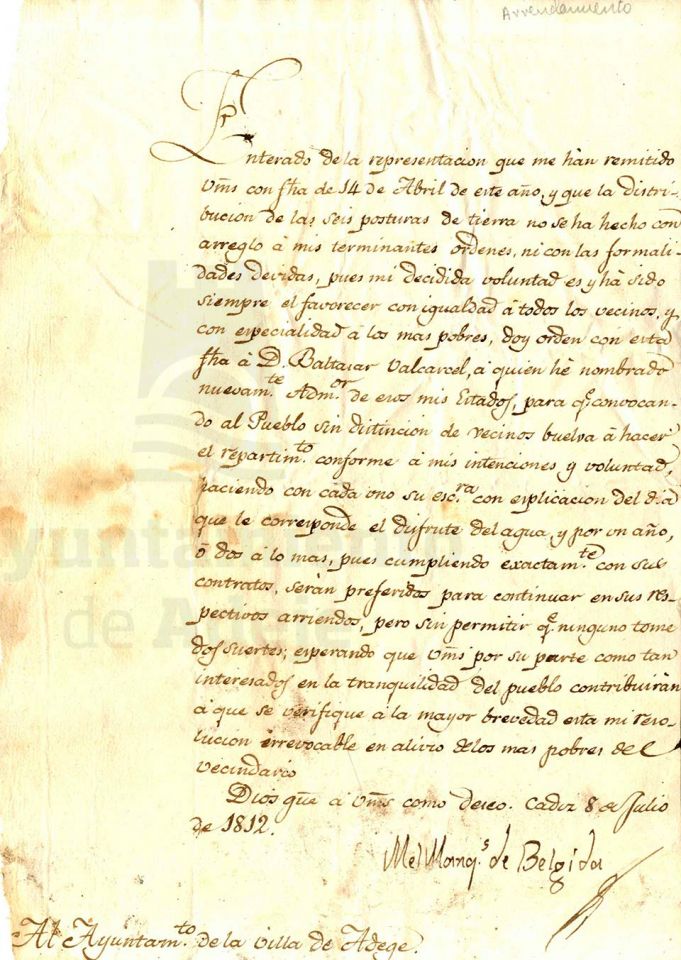 Arrendamiento
Enterado de la representacion que me hàn remitido
Vms con fha de 14 de Abril de este año, y que la distri-
bucion de las seis posturas de tierra no se ha hecho con
arreglo à mis terminantes ordenes, ni con las formali-
dades devidas, pues mi decidida voluntad es y hà sido
siempre el favorecer con igualdad à todos los vecinos, y
con especialidad à los mas pobres, doy orden con esta
fha à D. Baltasar Valcarcel, à quien hè nombrado
nuevam.te Adm.or de esos mis Estados, para q.e convocan-
do al Pueblo sin distincion de vecinos buelva à hacer
el repartim.to conforme à mis intenciones y voluntad,
haciendo con cada uno su esc.ra con esplicacion del dia
que le corresponde el disfrute del agua, y por un año,
ò dos à lo mas, pues cumpliendo exactam.te con sus
contratos, seràn preferidos para continuar en sus res-
pectivos arriendos, pero sin permitir q.e ninguno tome
dos suertes; esperando que Vms por su parte como tan
interesados en la tranquilidad del pueblo contribuiràn
à que se verifique à la mayor brevedad esta mi reso-
lucion irrevocable en alivio de los mas pobres de el
vecindario
Dios gũe à Vms como deseo. Cadiz 8 de Julio
de 1812.
Mel Marq.s de Belgida
Al Ayuntam.to de la Villa de Adege.
Ayuntamiento
de Adeje